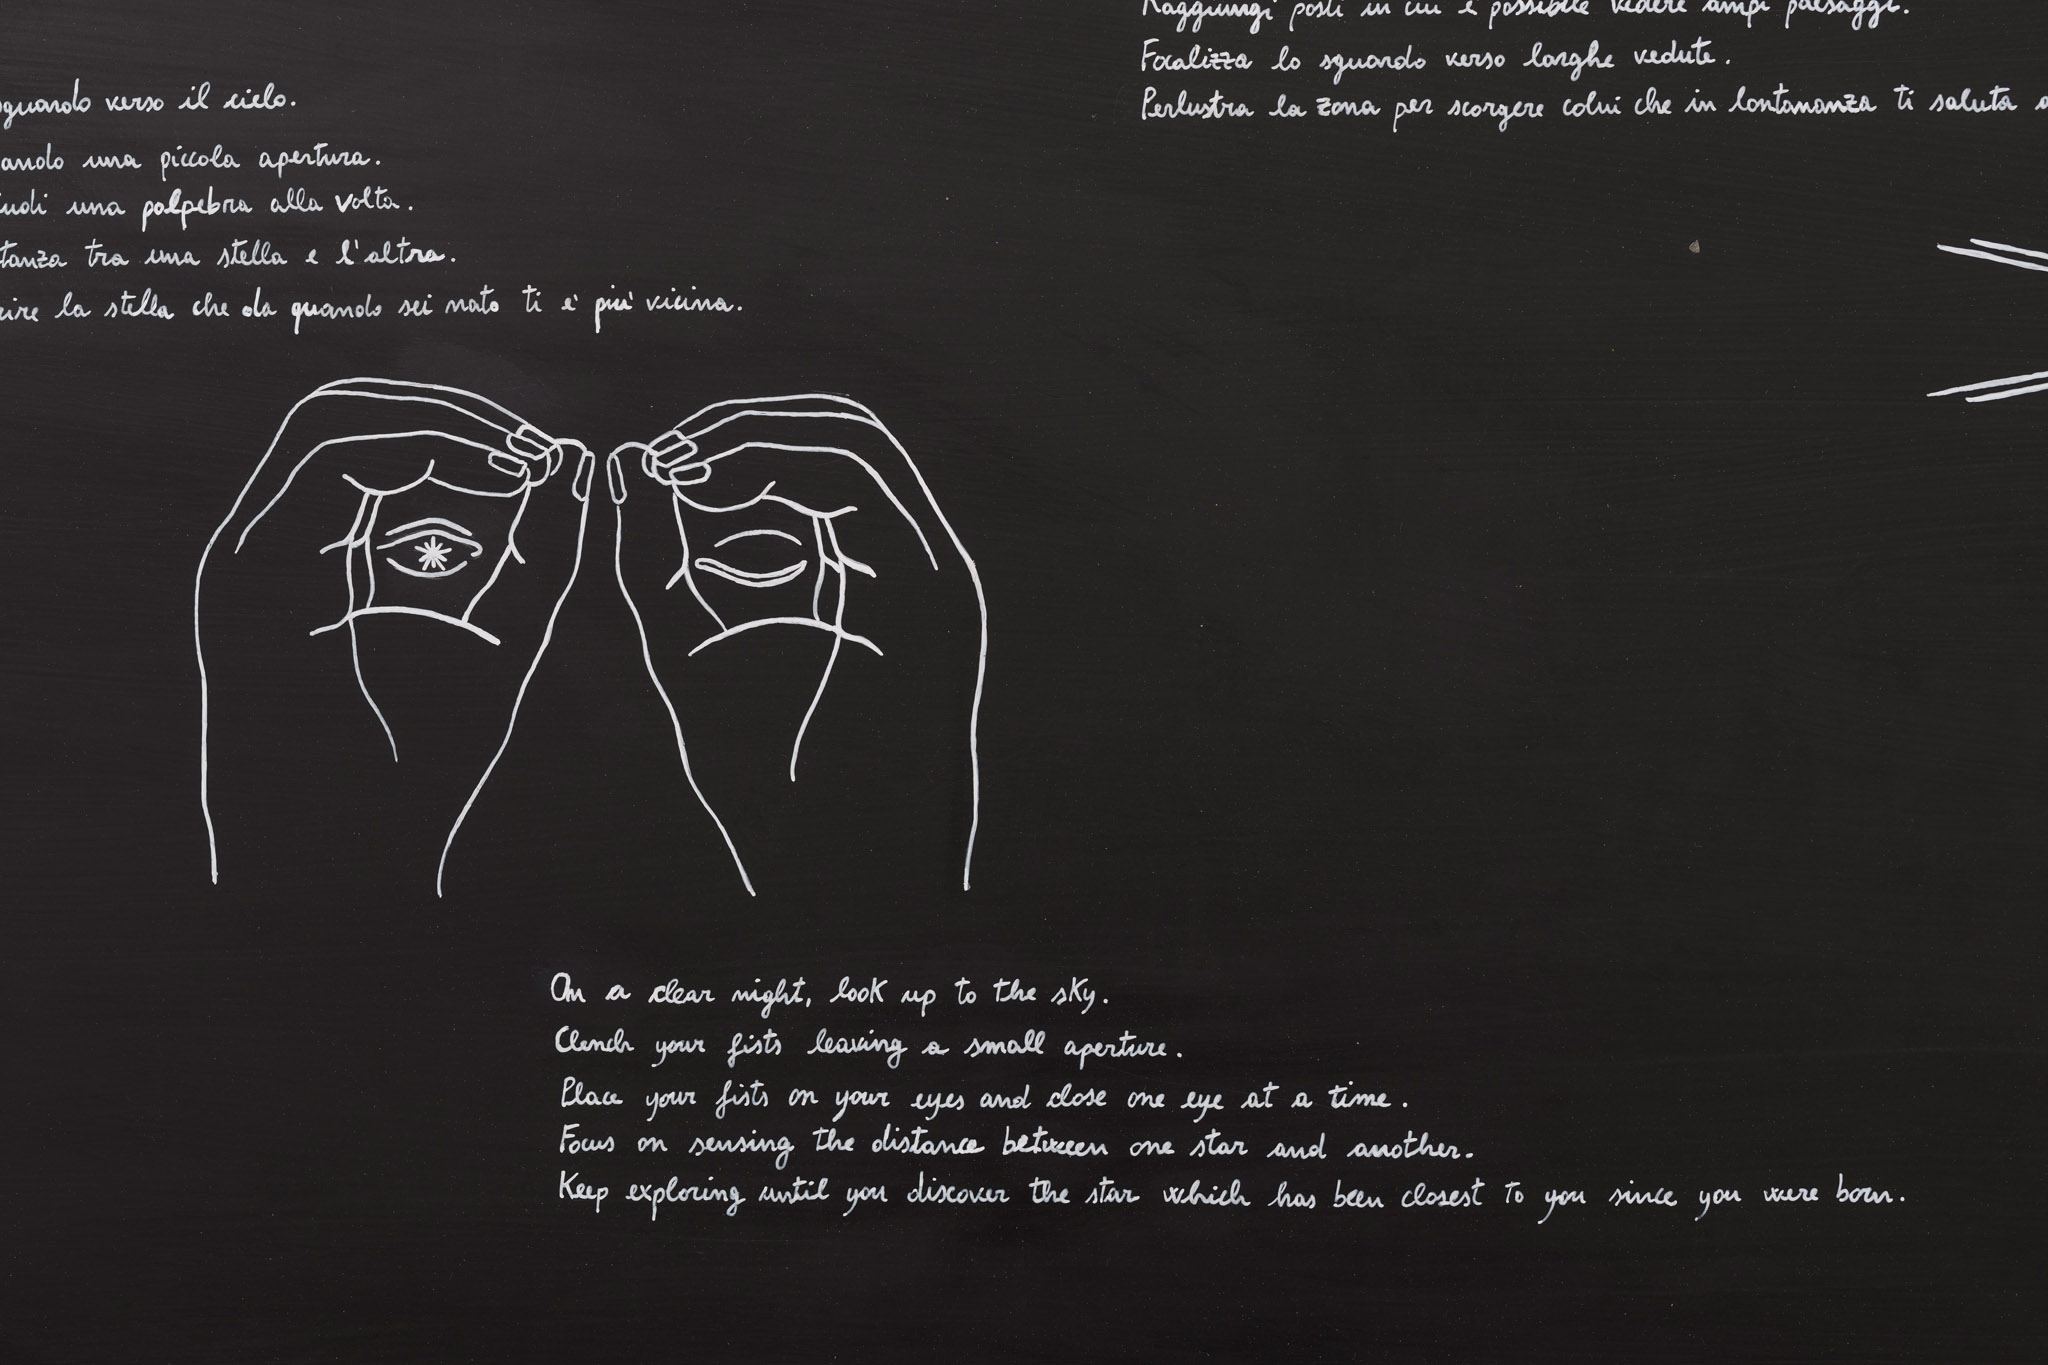 sguardo verso il cielo.
una piccola apertura.
una palpebra alla volta.
tra una stella e l'altra.
la stella che da quando sei nato ti è più vicina.
Raggiungi posti in cui è possibile vedere ampi paesaggi.
Focalizza lo sguardo verso larghe vedute.
Perlustra la zona per scorgere colui che in lontananza ti saluta
On a clear night, look up to the sky.
Clench your fists leaving a small aperture.
Place your fists on your eyes and close one eye at a time.
Focus on sensing the distance between one star and another.
Keep exploring until you discover the star which has been closest to you since you were born.